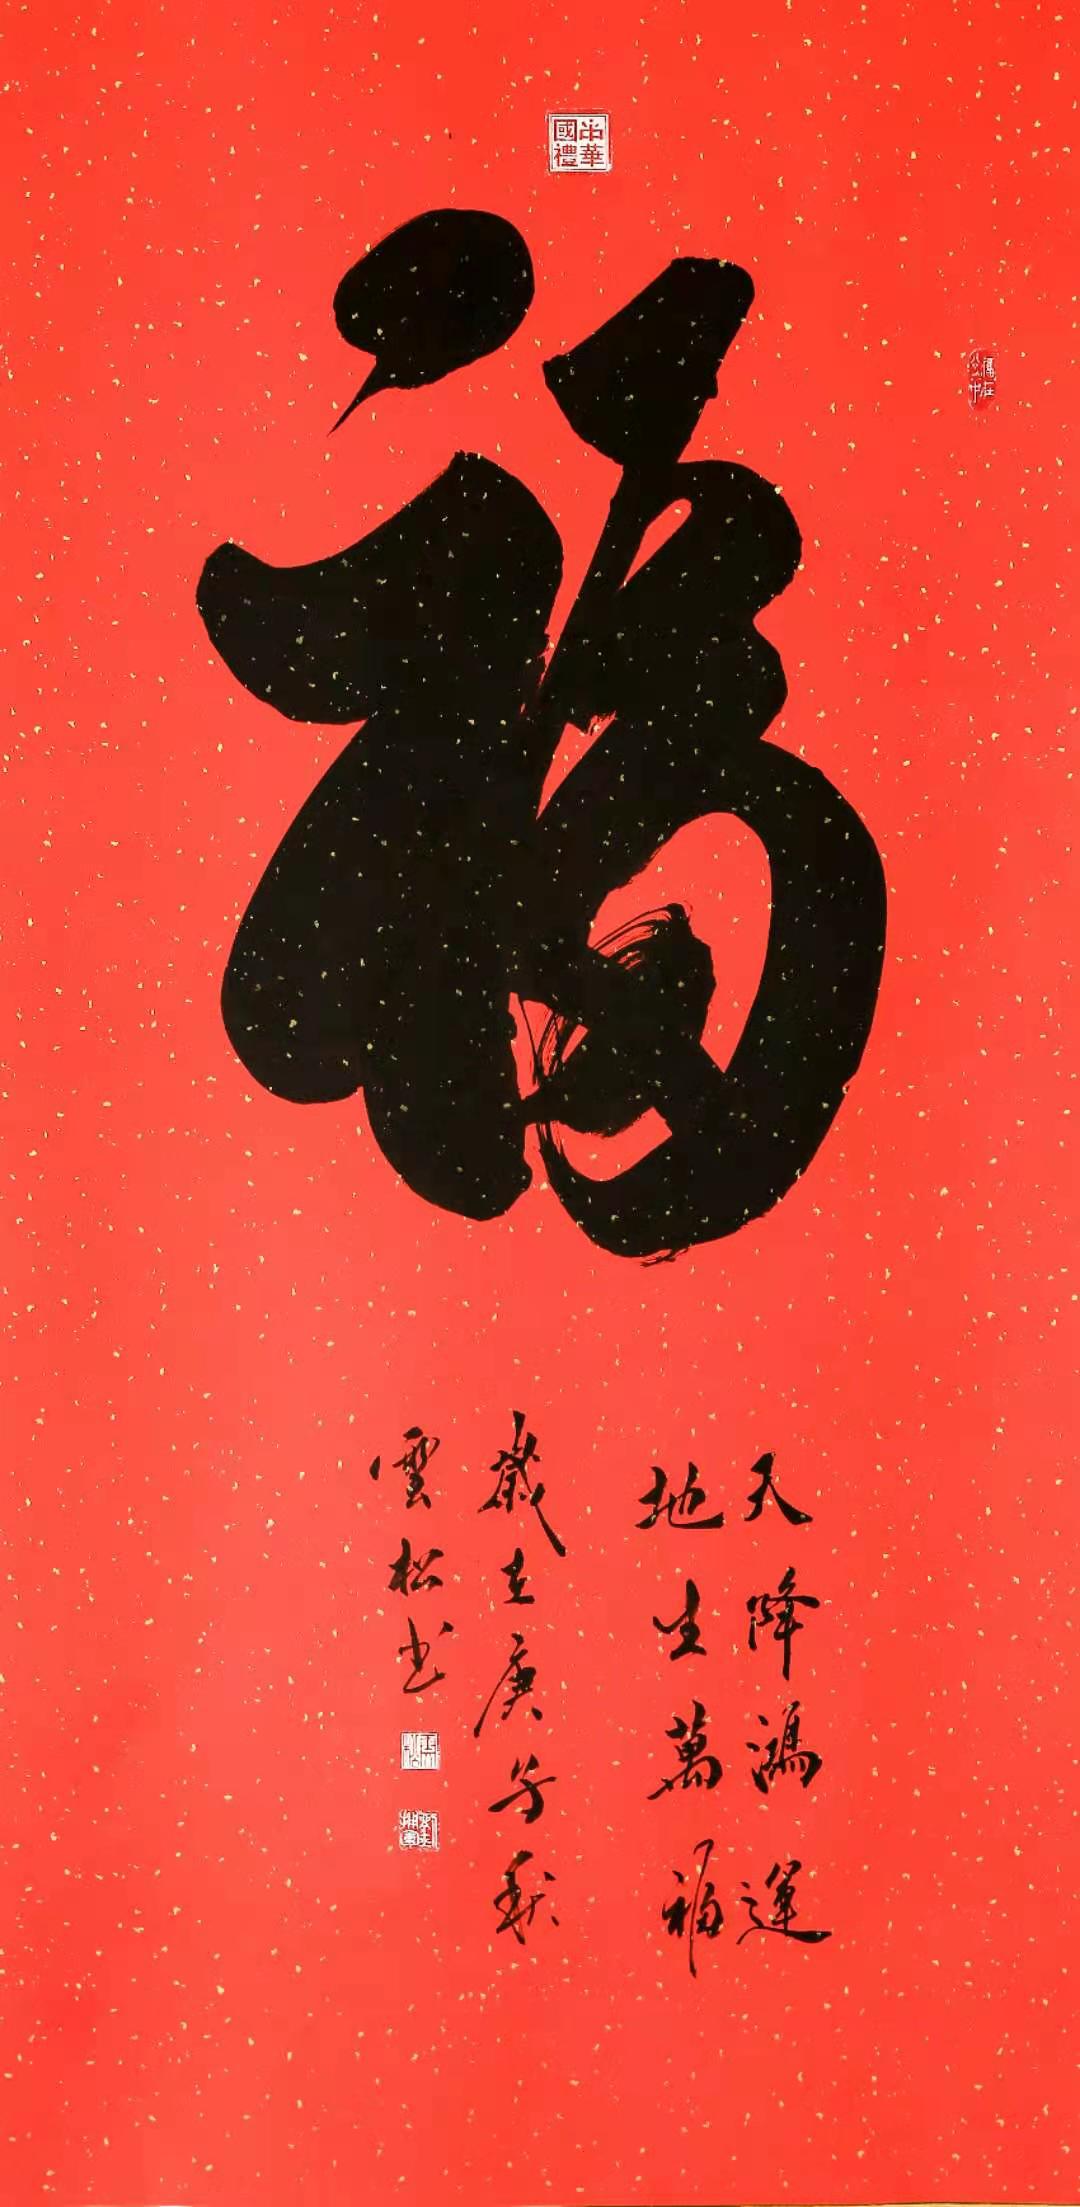 中華國禮
福
天降鴻運
地生萬福
歲在庚子秋
雲松書